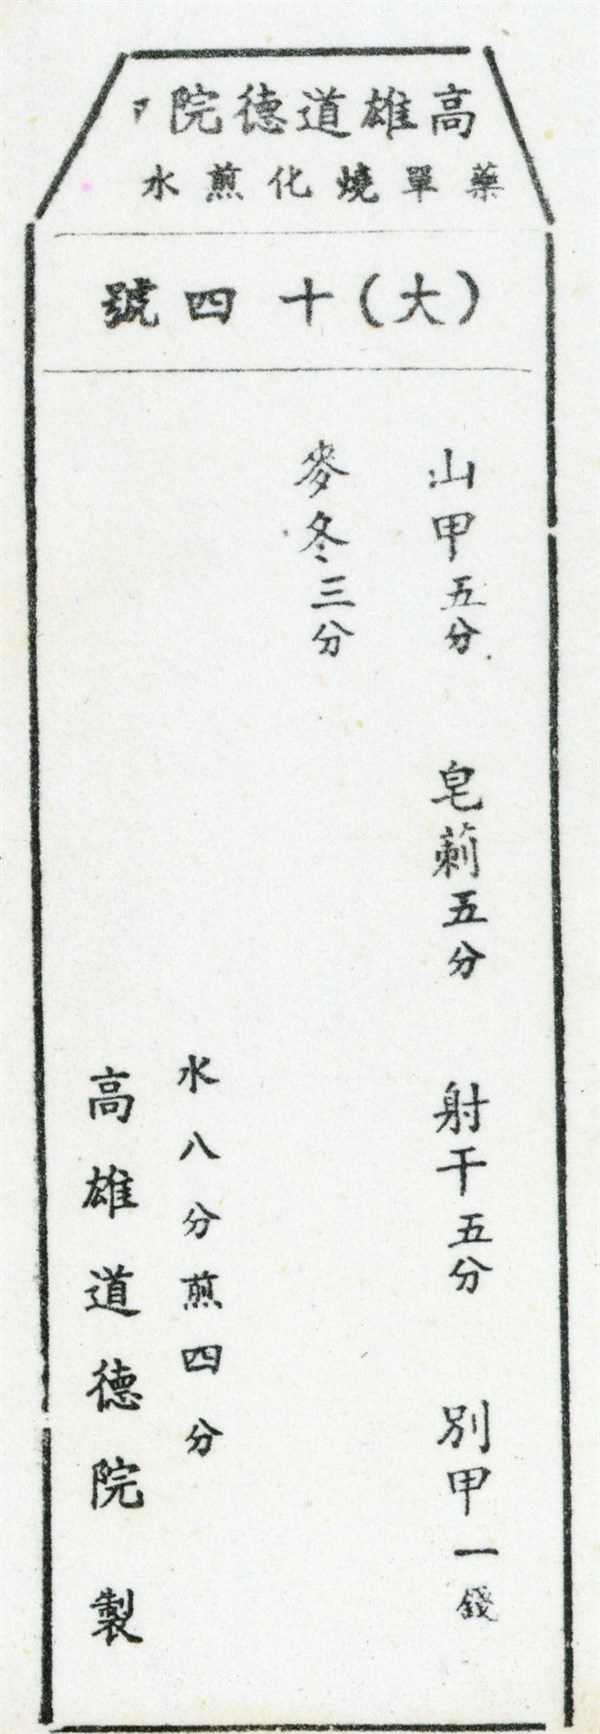 高雄道德院
藥單燒化煎水
(大)十四號
山甲五分 皂莿五分 射干五分 別甲一錢
麥冬三分
水八分煎四分
高雄道德院製